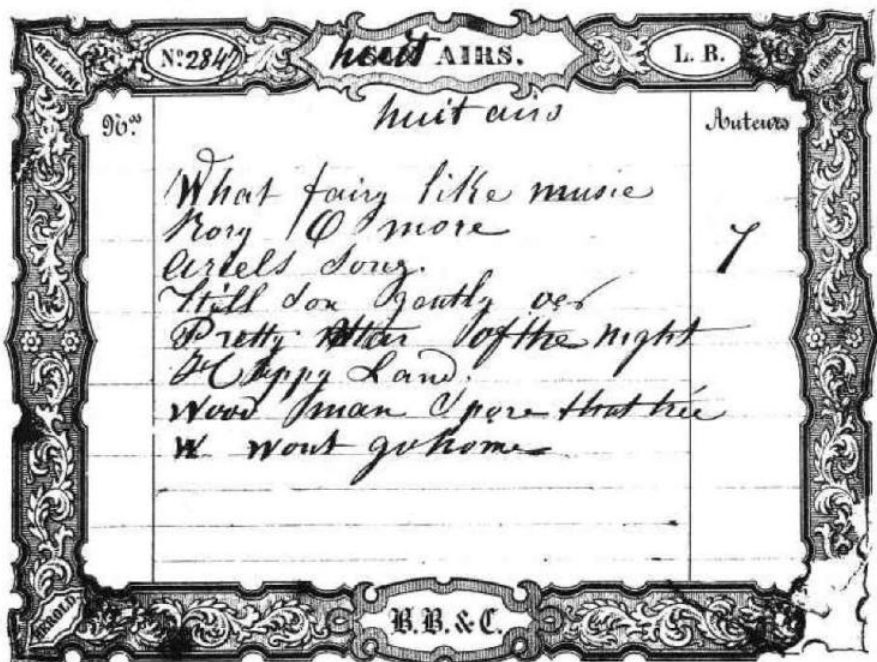 BELLINI
No. 2847
huit AIRS.
L. R.
AUBERT.
Nos
huit airs
Auteurs
What fairy like music
Rory O more
Ariels Song.
7
Still Son gently oer
Pretty Star of the night
Happy Land.
Wood man Spare that tree
W wont go home
HEROLD
B.B.&C.